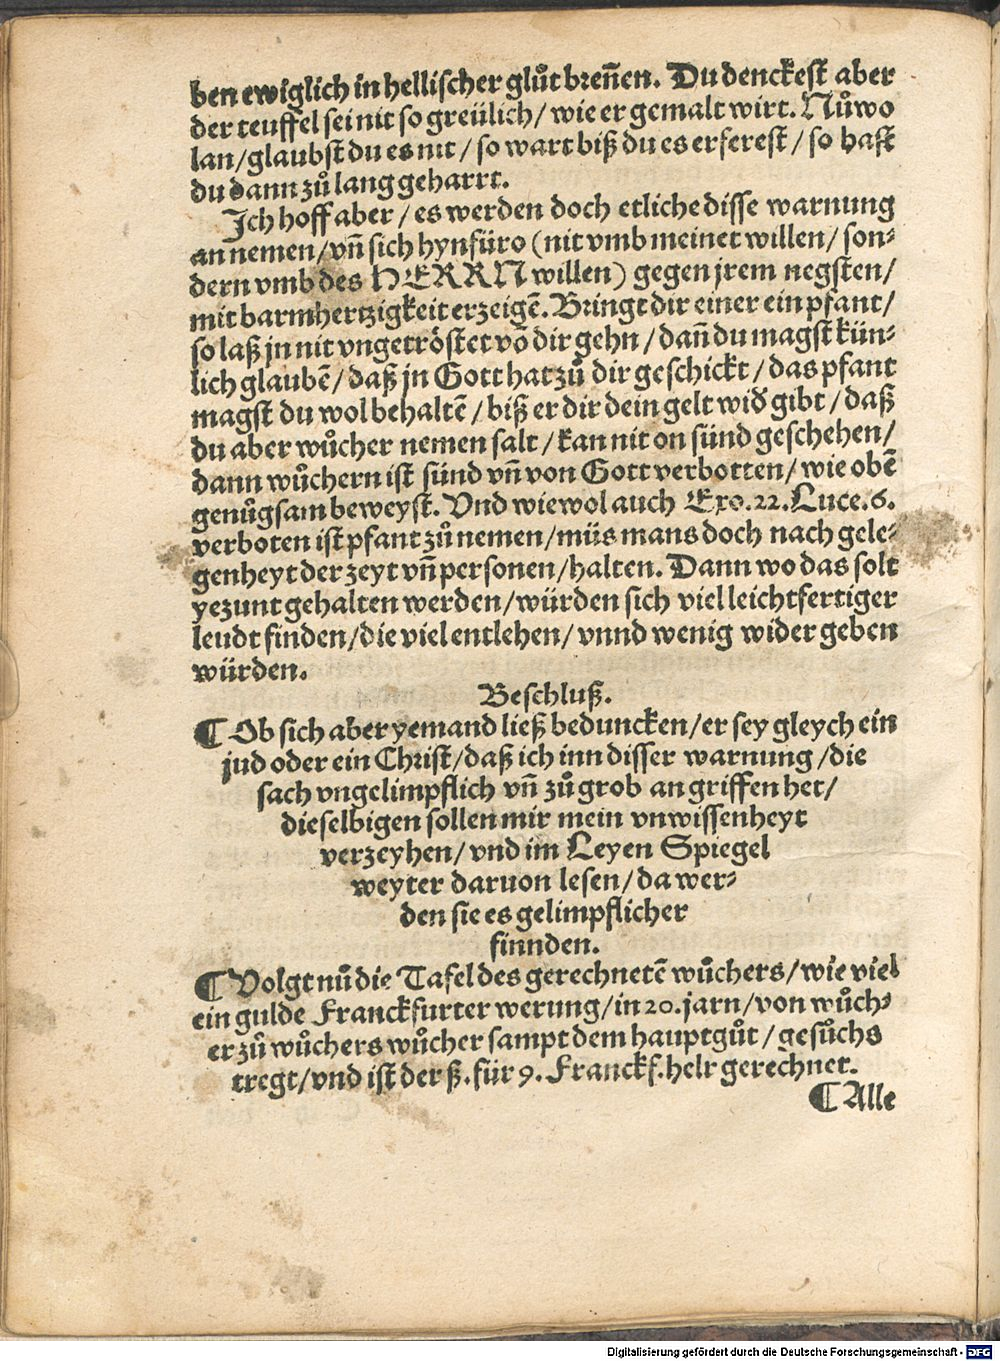 ben ewiglich in hellischer glůt breñen. Du denckest aber
der teuffel sei nit so greülich/ wie er gemalt wirt. Nůwo
lan/glaubst du es nit/ so wart biß du es erferest/ so hast
du dann zů lang geharrt.
Ich hoff aber/ es werden doch etliche disse warnung
an nemen/ vñ sich hynfüro (nit vmb meinet willen/ son⸗
dern vmb des HERRN willen) gegen jrem negsten/
mit barmhertzigkeit erzeigẽ. Bringt dir einer ein pfant/
so laß jn nit vngetröstet võ dir gehn/ dañ du magst kün⸗
lich glaubẽ/ daß jn Gott hat zů dir geschickt/ das pfant
magst du wol behaltẽ/ biß er dir dein gelt wiđ gibt/ daß
du aber wůcher nemen salt/ kan nit on sünd geschehen/
dann wůchern ist sünd vñ von Gott verbotten/ wie obẽ
genůgsam beweyst. Vnd wiewol auch Exo. 22. Luce. 6.
verboten ist pfant zů nemen/ müs mans doch nach gele⸗
genheyt der zeyt vñ personen/ halten. Dann wo das solt
yezunt gehalten werden/ würden sich viel leichtfertiger
leudt finden/ die viel entlehen/ vnnd wenig wider geben
würden.
Beschluß.
¶ Ob sich aber yemand ließ beduncken/ er sey gleych ein
jud oder ein Christ/ daß ich inn disser warnung/ die
sach vngelimpflich vñ zů grob angriffen het/
dieselbigen sollen mir mein vnwissenheyt
verzeyhen/ vnd im Leyen Spiegel
weyter daruon lesen/ da wer⸗
den sie es gelimpflicher
finnden.
¶ Volgt nů die Tafel des gerechnetẽ wůchers/ wie viel
ein gulde Franckfurter werung/ in 20. jarn/ von wůch⸗
er zů wůchers wůcher sampt dem hauptgůt/ gesůchs
tregt/ vnd ist der ß. für 9. Franckf. helr gerechnet.
¶ Alle
Digitalisierung gefördert durch die Deutsche Forschungsgemeinschaft - DFG